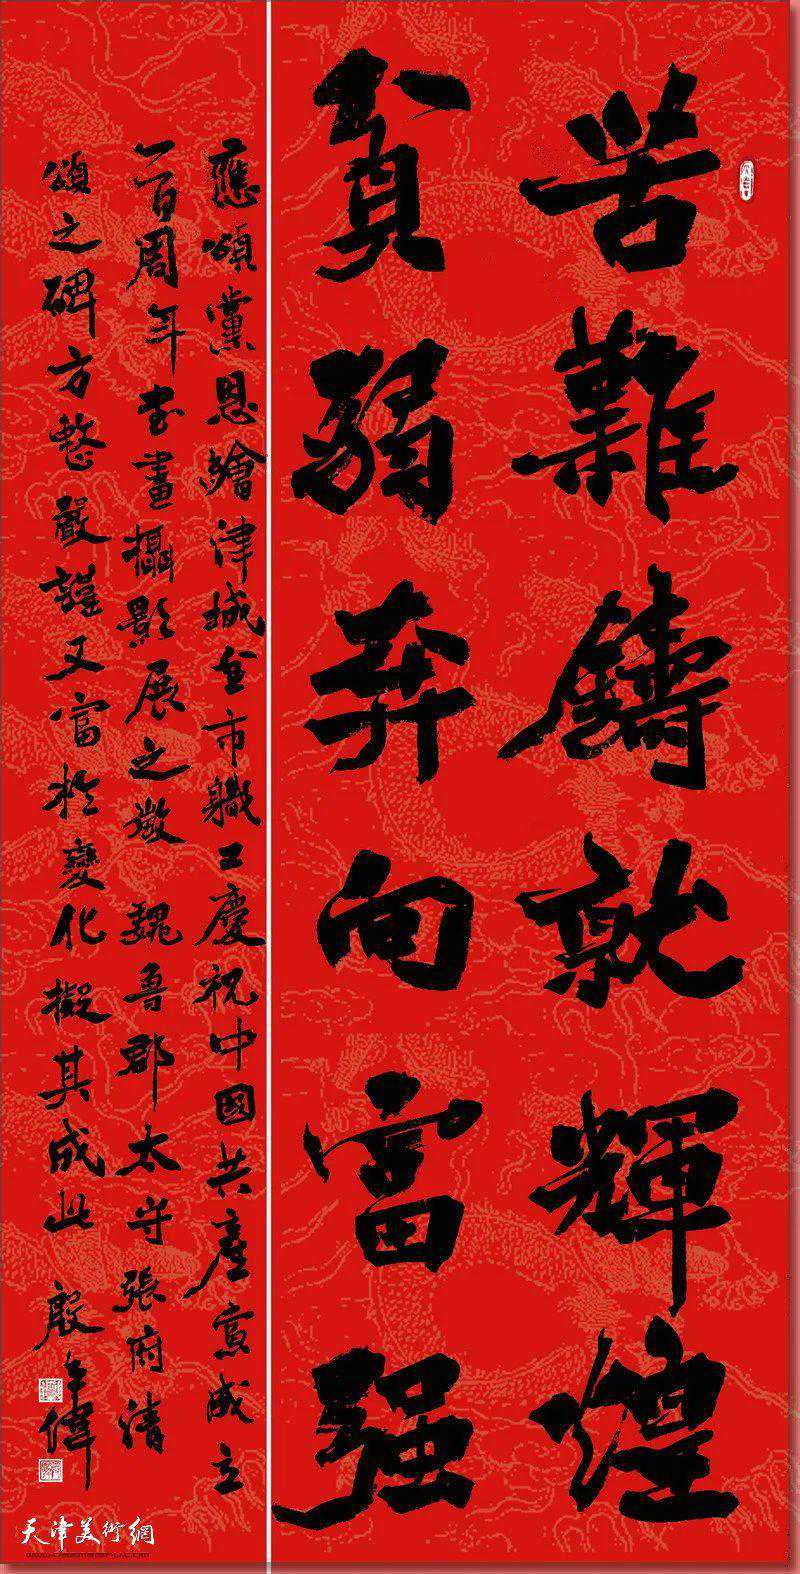 苦難鑄就輝煌
貧弱奔向富强
應頌黨恩繪津城全市職工慶祝中國共產黨成立
一百周年書畫攝影展之徵 魏魯郡太守張府清
頌之碑方整嚴謹又富於變化擬其成此 殷 偉
天津美術網